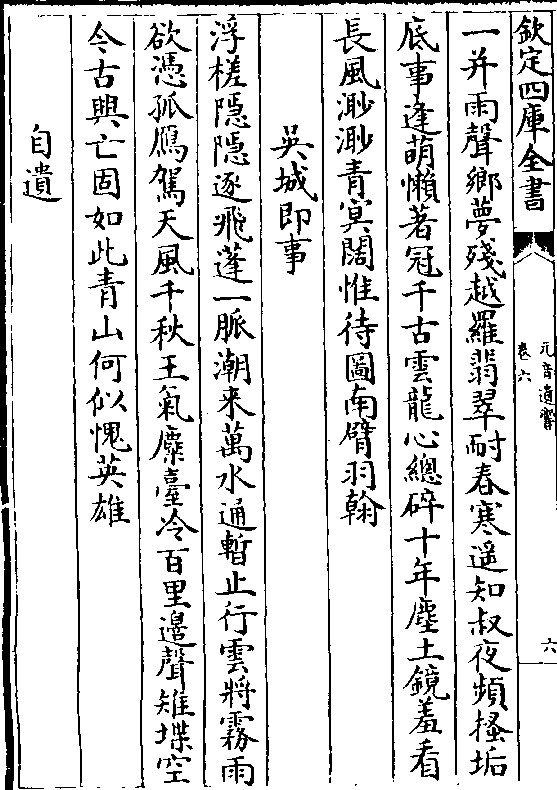 欽定四庫全書
元音遺響
卷六
六
一并雨聲鄉夢殘越羅翡翠耐春寒遥知叔夜頻搔垢
底事逢萌懶著冠千古雲龍心總碎十年塵土鏡羞看
長風渺渺青㝠闊惟待圖南臂羽翰
吳城即事
浮槎隠隠逐飛蓬一脈潮來萬水通暫止行雲將霧雨
欲憑孤鴈駕天風千秋王氣麋臺冷百里邊聲雉堞空
今古興亡固如此青山何似愧英雄
自遣